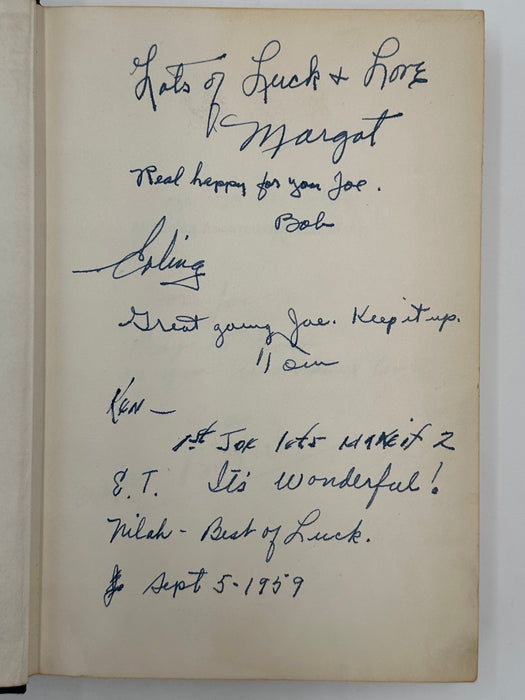 Lots of Luck & Love
Margot
Real happy for you Joe.
Bob
Erling
Great going Joe. Keep it up.
Ken —
1st Joe lets make it 2
E.T. It's Wonderful!
Nilah - Best of Luck.
Sept 5-1959